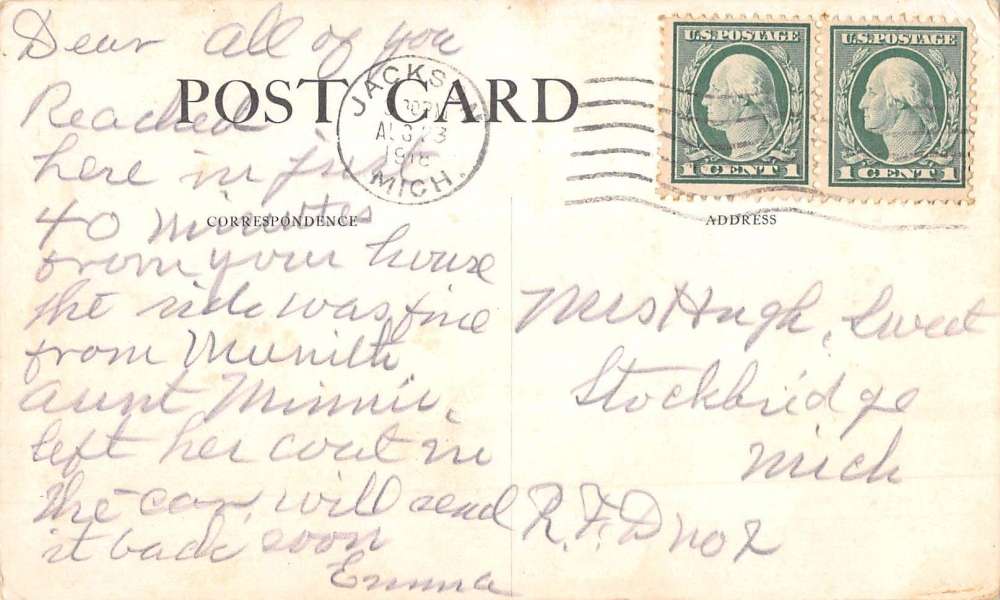 Dear all of you
POST CARD
JACKSON
AUG 23
1918
MICH.
U.S. POSTAGE
1 CENT 1
U.S. POSTAGE
1 CENT 1
Reached
here in just
40 minutes
CORRESPONDENCE
from your house
the ride was fine
from Munith
aunt Minnie
left her coat in
the car will send
it back soon
Emma
ADDRESS
Mrs Hugh, Sweet
Stockbridge
Mich
R.F.D no 2